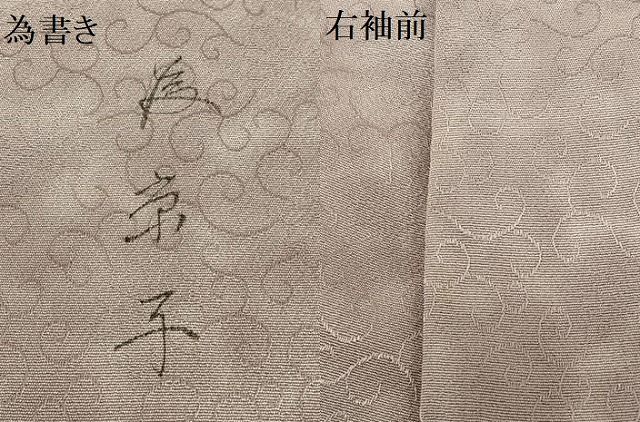 為書き
右袖前
為
京
子